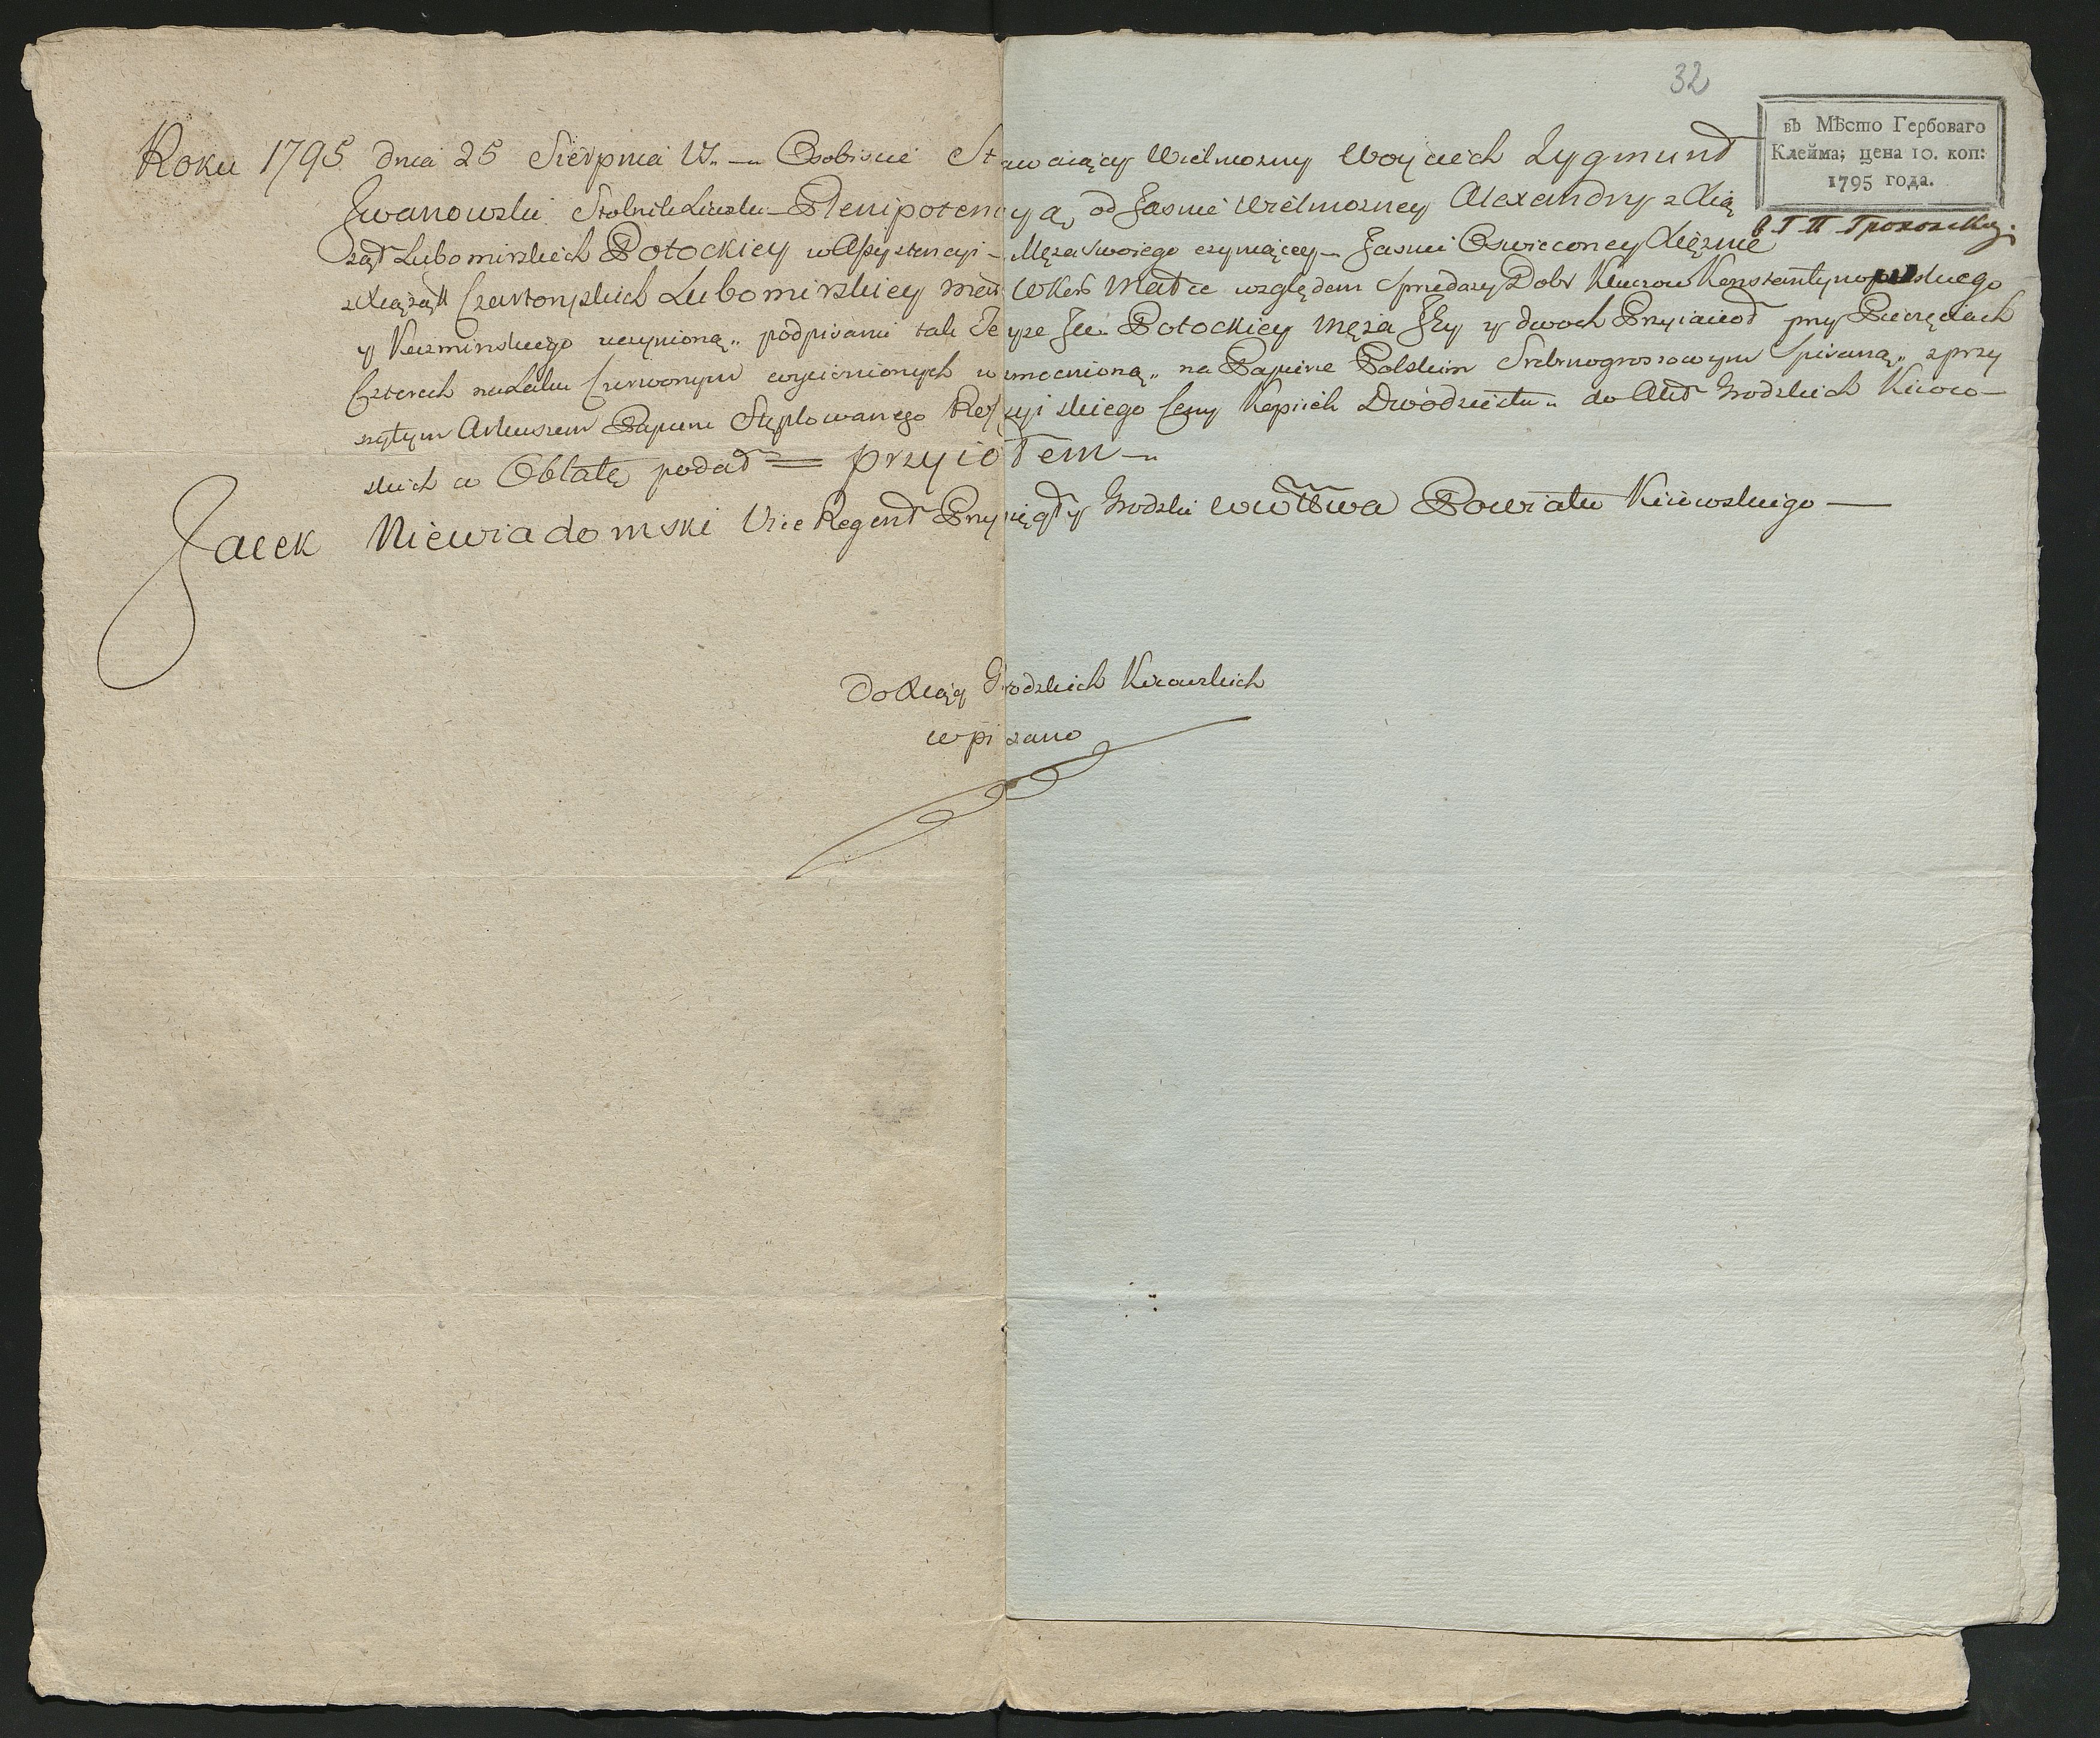 32
въ Мѣсто Гербоваго
Клейма; цена 10. коп:
1795 года.
Roku 1795 dnia 25 Sierpnia V. S. — Osobiscie Stawaiący Wielmozny Woyciech Zygmunt
Jwanowski Stolnik — Plenipotencyą od Jasnie Wielmozney Alexandry z Xią
ząt Lubomirskich Potockiey w Assystencyi — Męza swoiego czyniącey — Jasnie Oswieconey Xięznie
z Xiąząt Czartoryskich Lubomirskiey Matce względem Sprzedazy Dobr Kluczow Konstantynopolskiego
y Kuzminskiego uczynioną„ podpisami tak Teyze Potockiey Męza Jey y dwoch Przyiacioł przy Pieczęciach
Czterech na Laku Czerwonym wyciśnionych umocnioną„ na Papierze Polskim Srebrnogroszowym Spisaną„ z przy
szytym Arkuszem Papieru Stęplowanego Rossyiskiego Ceny Kopiiek Dwódziestu„ do Akt Grodzkich Kiiow—
skich w Oblatę podał = przyiołem —
Jacek Niewiadomski Vice Regent Przysięgły Grodzki Powiatu Kiiowskiego —
Do Xiąg Grodzkich Kiiowskich
wpisano